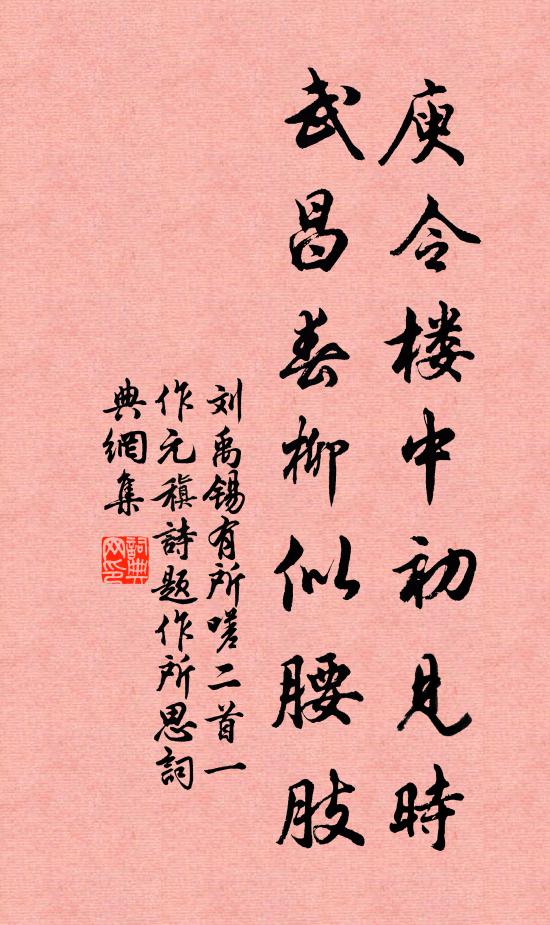 庾令楼中初见時
武昌春柳似腰肢
刘禹锡有所嗟二首一
作元稹詩题作所思詞
典網集
詞典網印